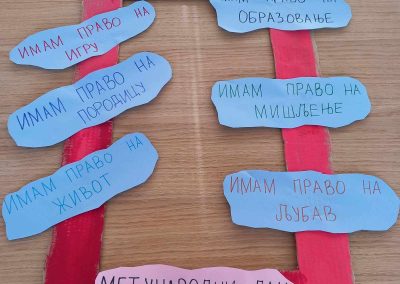 ИМАМ ПРАВО НА
ИГРУ
ИМАМ ПРАВО НА
ПОРОДИЦУ
ИМАМ ПРАВО НА
ЖИВОТ
ПРАВО НА
ОБРАЗОВАЊЕ
ИМАМ ПРАВО НА
МИШЉЕЊЕ
ИМАМ ПРАВО НА
ЉУБАВ
МЕЂУНАРОДНИ ДАН